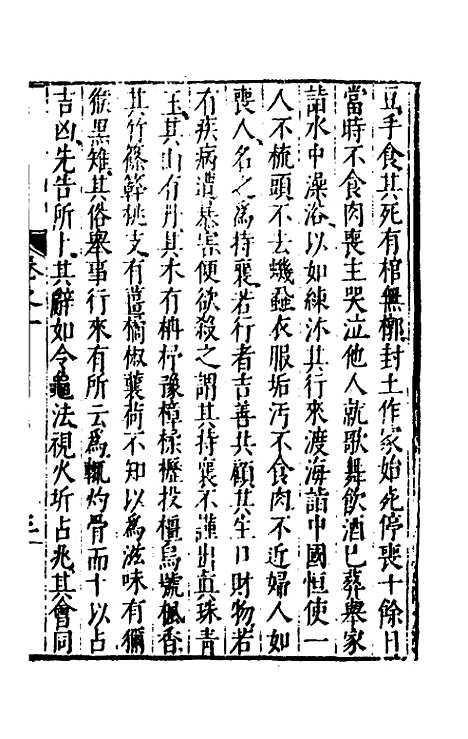 豆手食其死有棺無槨封土作冢始死停喪十餘日
當時不食肉喪主哭泣他人就歌舞飲酒已葬舉家
詣水中澡浴以如練沐其行來渡海詣中國恒使一
人不梳頭不去蟣蝨衣服垢汚不食肉不近婦人如
喪人名之為持衰若行者吉善共顧其生口財物若
有疾病遭暴害便欲殺之謂其持衰不謹出真珠青
玉其山有丹其木有枏杼豫樟楺櫪投橿烏號楓香
其竹篠簳桃支有薑橘椒蘘荷不知以為滋味有獮
猴黑雉其俗舉事行來有所云為輒灼骨而卜以占
吉凶先告所卜其辭如令龜法視火坼占兆其會同